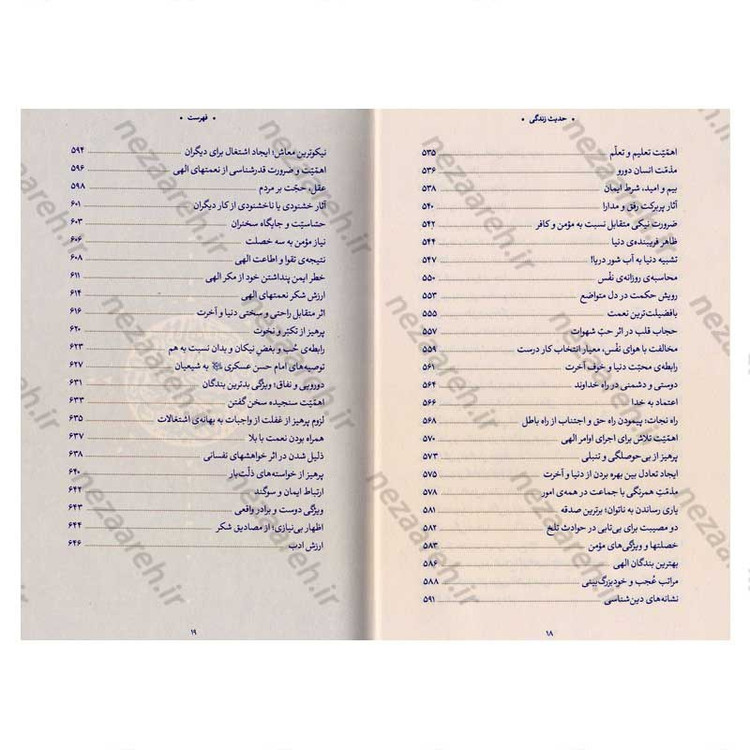 • حدیث زندگی •
اهمّیّت تعلیم و تعلّم ۵۳۵
مذمّت انسان دورو ۵۳۶
بیم و امید، شرط ایمان ۵۳۸
آثار پربرکت رفق و مدارا ۵۴۰
ضرورت نیکی متقابل نسبت به مؤمن و کافر ۵۴۲
ظاهر فریبنده‌ی دنیا ۵۴۴
تشبیه دنیا به آب شور دریا! ۵۴۷
محاسبه‌ی روزانه‌ی نفْس ۵۵۰
رویش حکمت در دل متواضع ۵۵۳
بافضیلت‌ترین نعمت ۵۵۵
حجاب قلب در اثر حبّ شهوات ۵۵۷
مخالفت با هوای نفْس، معیار انتخاب کار درست ۵۵۹
رابطه‌ی محبّت دنیا و خوف آخرت ۵۶۱
دوستی و دشمنی در راه خداوند ۵۶۴
اعتماد به خدا ۵۶۶
راه نجات؛ پیمودن راه حق و اجتناب از راه باطل ۵۶۸
اهمّیّت تلاش برای اجرای اوامر الهی ۵۷۰
پرهیز از بی‌حوصلگی و تنبلی ۵۷۳
ایجاد تعادل بین بهره بردن از دنیا و آخرت ۵۷۵
مذمّت همرنگی با جماعت در همه‌ی امور ۵۷۸
یاری رساندن به ناتوان؛ برترین صدقه ۵۸۱
دو مصیبت برای بی‌تابی در حوادث تلخ ۵۸۲
خصلتها و ویژگی‌های مؤمن ۵۸۳
بهترین بندگان الهی ۵۸۶
مراتب عُجب و خودبزرگ‌بینی ۵۸۸
نشانه‌های دین‌شناسی ۵۹۱
۱۸
• فهرست •
نیکوترین معاش؛ ایجاد اشتغال برای دیگران ۵۹۴
اهمّیّت و ضرورت قدرشناسی از نعمتهای الهی ۵۹۶
عقل، حجّت بر مردم ۵۹۸
آثار خشنودی یا ناخشنودی از کار دیگران ۶۰۱
حسّاسیّت و جایگاه سخنران ۶۰۳
نیاز مؤمن به سه خصلت ۶۰۶
نتیجه‌ی تقوا و اطاعت الهی ۶۰۸
خطر ایمن پنداشتن خود از مکر الهی ۶۱۱
ارزش شکر نعمتهای الهی ۶۱۴
اثر متقابل راحتی و سختی دنیا و آخرت ۶۱۶
پرهیز از تکبّر و نخوت ۶۲۰
رابطه‌ی حُب و بغضِ نیکان و بدان نسبت به هم ۶۲۳
توصیه‌های امام حسن عسکری به شیعیان ۶۲۷
دورویی و نفاق؛ ویژگی بدترین بندگان ۶۳۱
اهمّیّت سنجیده سخن گفتن ۶۳۳
لزوم پرهیز از غفلت از واجبات به بهانه‌ی اشتغالات ۶۳۵
همراه بودن نعمت با بلا ۶۳۷
ذلیل شدن در اثر خواهشهای نفسانی ۶۳۸
پرهیز از خواسته‌های ذلّت‌بار ۶۴۰
ارتباط ایمان و سوگند ۶۴۲
ویژگی دوست و برادر واقعی ۶۴۳
اظهار بی‌نیازی؛ از مصادیق شکر ۶۴۴
ارزش ادب ۶۴۶
۱۹
nezaareh.ir